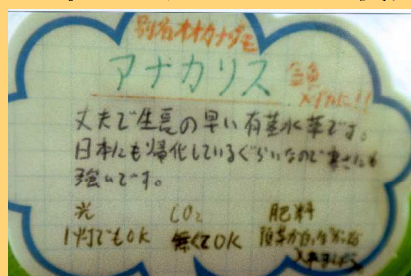 別名オオカナダモ
アナカリス
金魚
メダカに!!
丈夫で生長の早い有茎水草です。
日本にも帰化しているぐらいなので寒さにも
強いです。
光 CO2 肥料
1灯でもOK 無くてOK